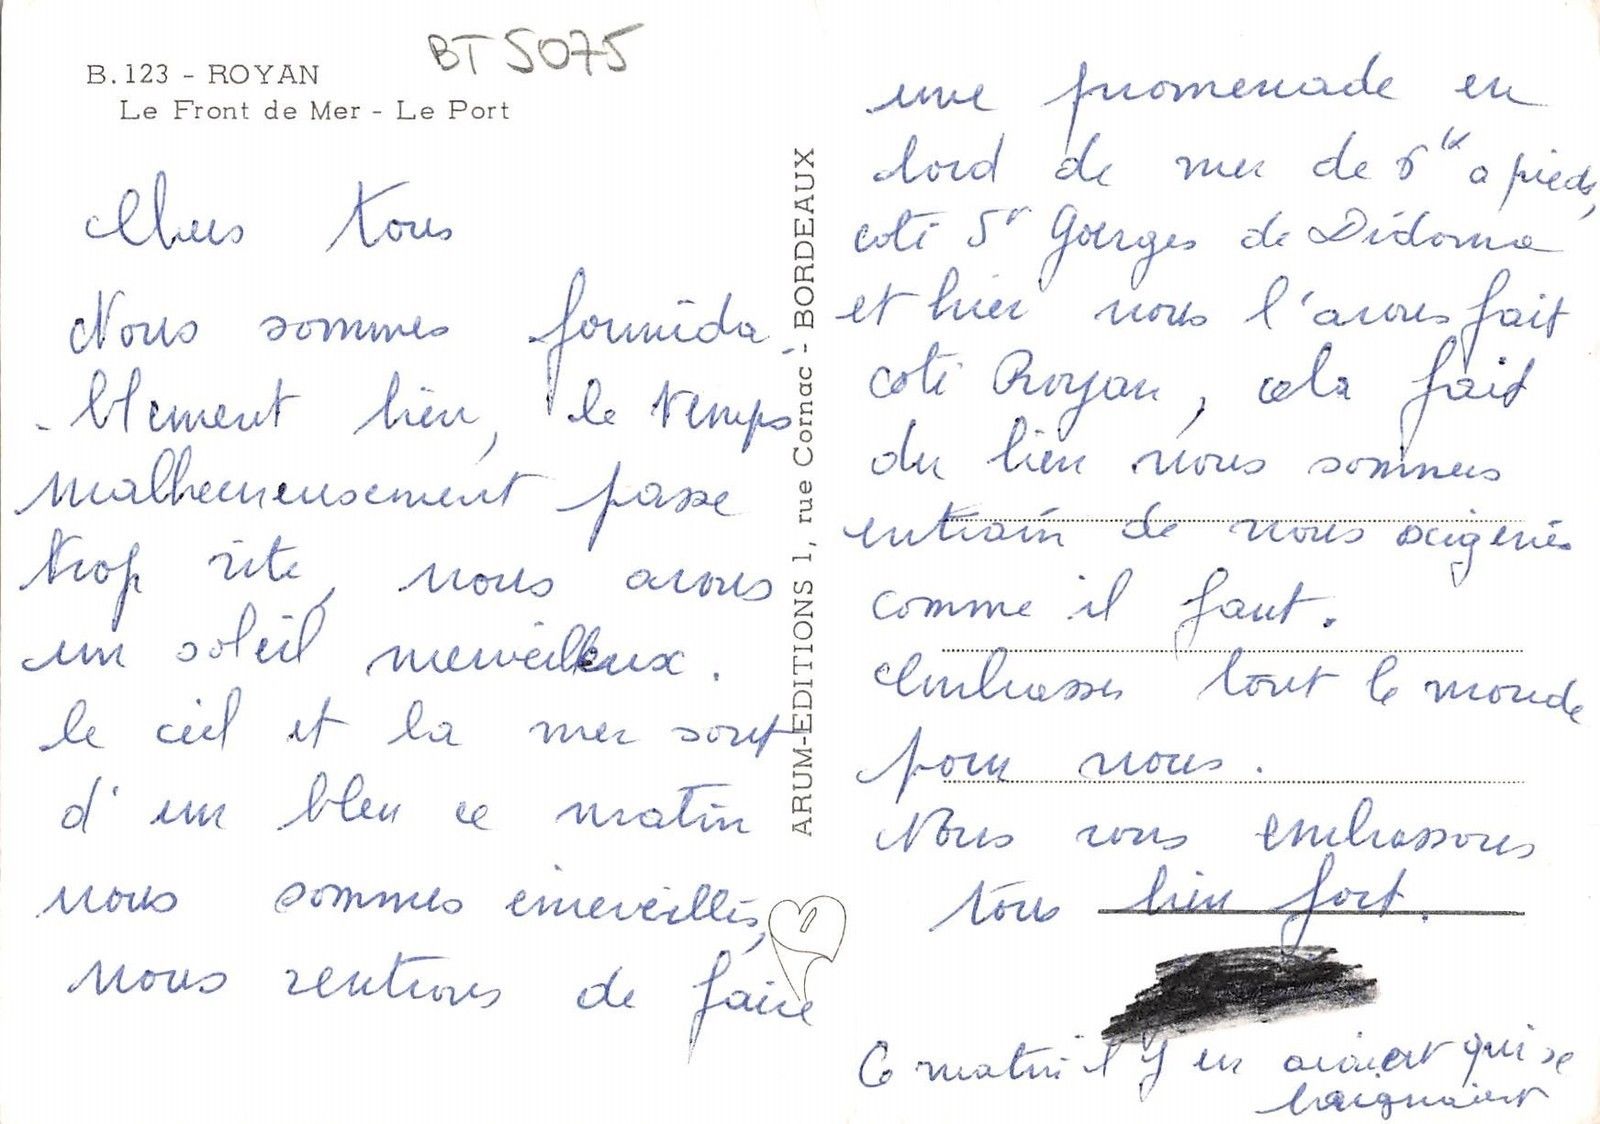 B. 123 - ROYAN
Le Front de Mer - Le Port
BT 5075
Chers tous
Nous sommes formida
-blement bien, le temps
malheureusement passe
trop vite, nous avons
un soleil merveilleux.
le ciel et la mer sont
d'un bleu ce matin
nous sommes émerveillés,
nous rentrons de faire
ARUM-EDITIONS 1, rue Cornac - BORDEAUX
une promenade en
bord de mer de à pieds,
coté St Goerges de Didonne
et hier nous l'avons fait
coté Royan, cela fait
du bien nous sommes
entrain de nous oxigénés
comme il faut.
Embrasses tout le monde
pour nous.
Nous vous embrassons
tous bien fort.
Ce matin il y en avaient qui se
baignaient